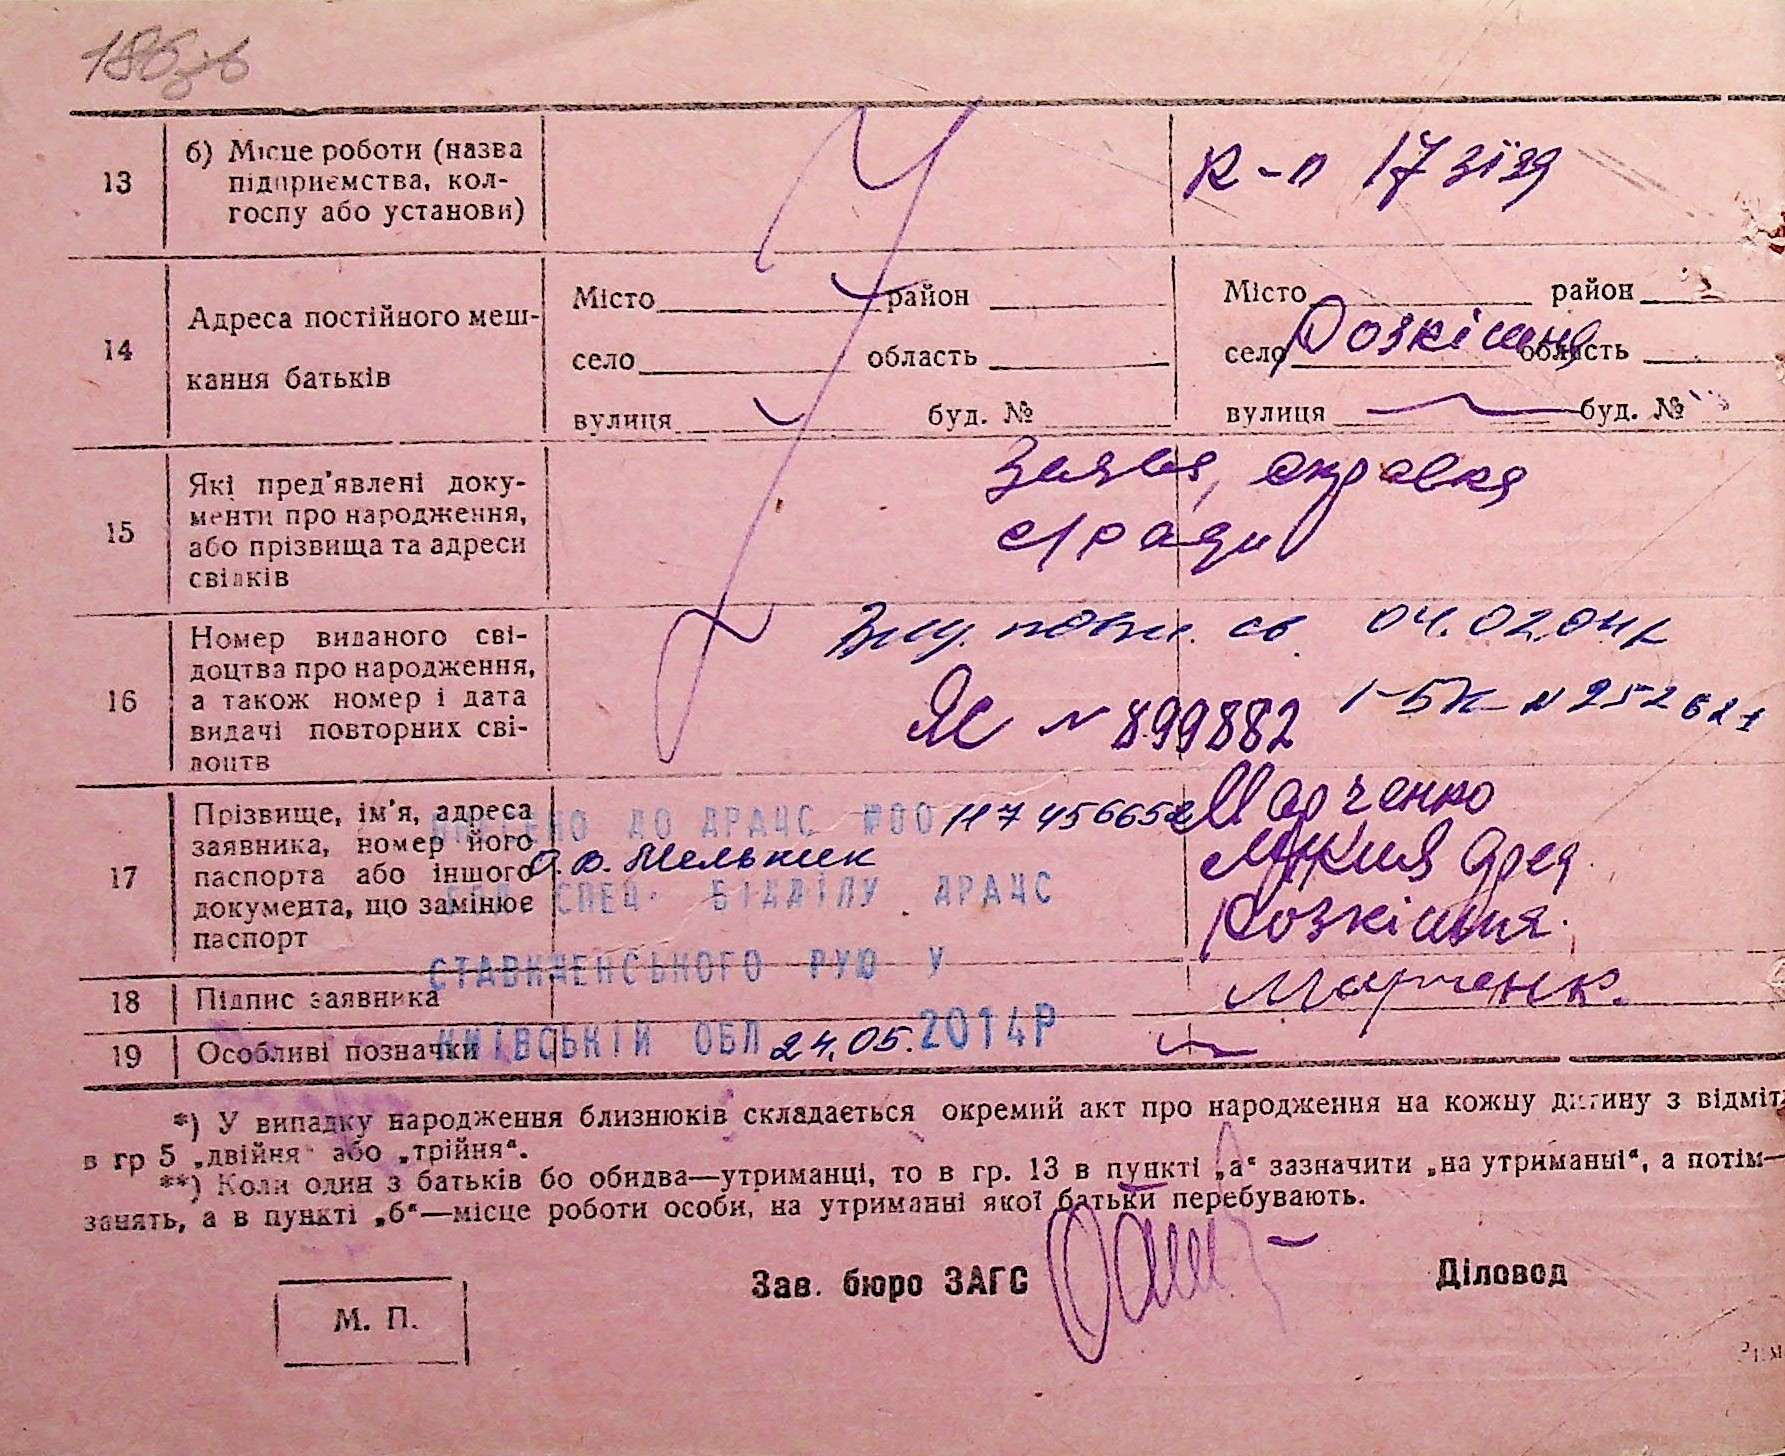 186зв
13
б) Місце роботи (назва
підприємства, кол-
госпу або установи)
к-п 17 зїзд
14
Адреса постійного меш-
кання батьків
Місто район
село область
вулиця буд. №
Місто район
село Розкішне область
вулиця буд. №
15
Які пред'явлені доку-
менти про народження,
або прізвища та адреси
свідків
Заява, справка
с/ради
16
Номер виданого сві-
доцтва про народження,
а також номер і дата
видачі повторних сві-
доцтв
повт. св. 04.02.04
ЯС № 899882
І-БК № 252621
17
Прізвище, ім'я, адреса
заявника, номер його
паспорта або іншого
документа, що замінює
паспорт
ДО ДРАЦС №00117456652
Мельник
СПЕЦ. ВІДДІЛУ ДРАЦС
СТАВИЩЕНСЬКОГО РУЮ У
КИЇВСЬКІЙ ОБЛ 24.05.2014Р
Марченко
Розкішня.
18
Підпис заявника
Марченк.
19
Особливі позначки
*) У випадку народження близнюків складається окремий акт про народження на кожну дитину з відміт
в гр 5 „двійня" або „трійня".
**) Коли один з батьків бо обидва—утриманці, то в гр. 13 в пункті „а" зазначити „на утриманні", а потім—
занять, а в пункті „б"—місце роботи особи, на утриманні якої батьки перебувають.
Зав. бюро ЗАГС
Діловод
М. П.